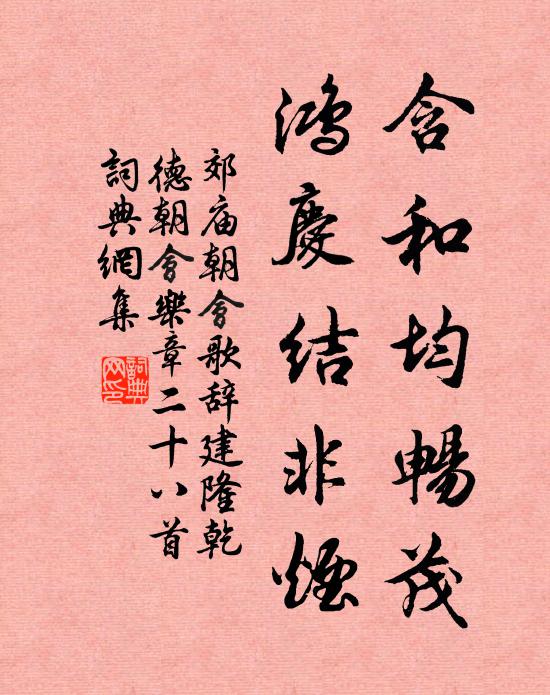 含和均暢茂
鴻慶結非煙
郊庙朝會歌辞建隆乾
德朝會樂章二十八首
詞典網集
詞典网印